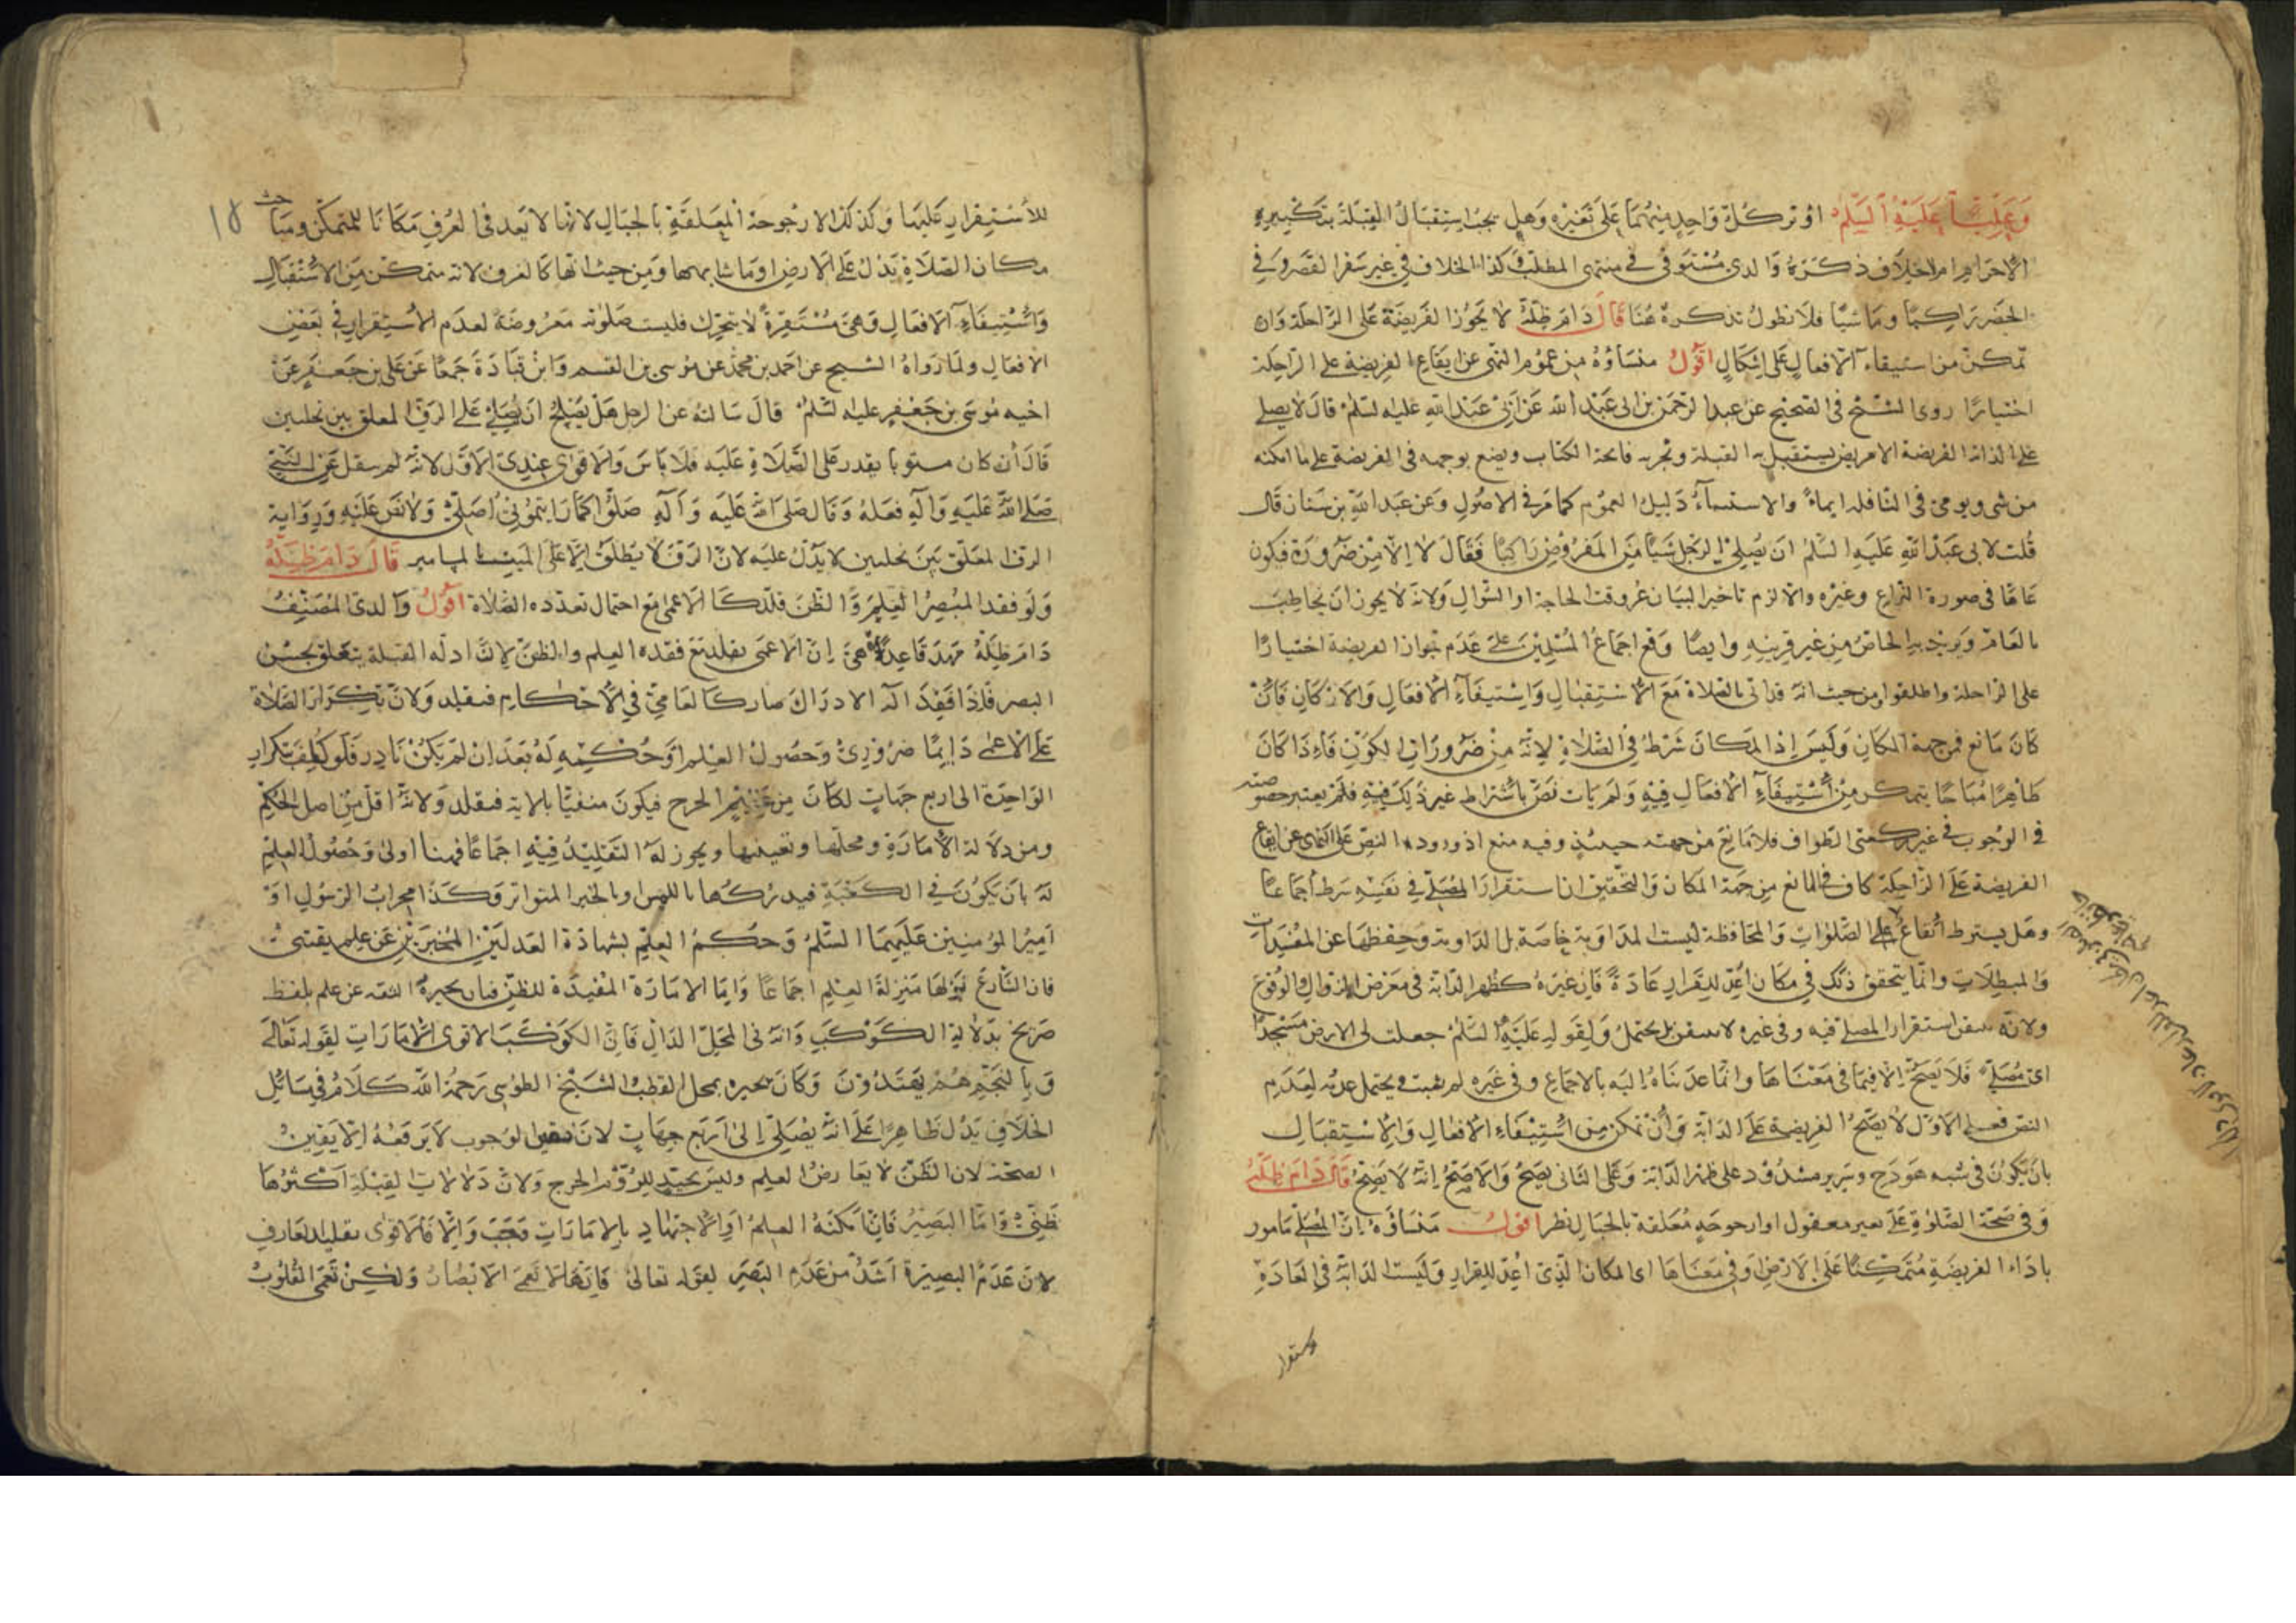 وعلينا عليه السلم او نز كل واحد منهما على تغيره وهل يجب استقبال القبلة بتكبيرة
الاحرام ام لا خلاف ذكره والدى مستوفى فى منتهى المطلب وكذا الخلاف فى غير سفر القصر وفى
الحضر راكبا وماشيا فلا نطول بذكره هنا قال دام ظله لا يجوز الفريضة على الراحلة وان
تمكن من استيفاء الافعال على اشكال اقول منشاؤه من عموم النهى عن ايقاع الفريضة على الراحلة
اختيارا روى الشيخ فى الصحيح عن عبد الرحمن بن ابى عبد الله عن ابى عبد الله عليه السلم قال لا يصلى
على الدابة الفريضة الا مريض يستقبل به القبلة وتجزيه فاتحة الكتاب ويضع بوجهه فى الفريضة على ما امكنه
من شى ويومى فى النافلة ايماء والاستثناء دليل العموم كما مر فى الاصول وعن عبد الله بن سنان قال
قلت لابى عبد الله عليه السلم ان يصلى الرجل شيا من المفروض راكبا فقال لا الا من ضرورة فيكون
عاما فى صورة النزاع وغيره والا لزم تاخير البيان عن وقت الحاجة او السوال ولانه لا يجوز ان يخاطب
بالعام ويريد به الخاص من غير قرينه وايضا وقع اجماع المسلمين على عدم جواز الفريضة اختيارا
على الراحلة واطلقوا ومن حيث انه قد اتى بالصلاة مع الاستقبال واستيفاء الافعال والاركان فان
كان مانع فمن جهة المكان وليس اذ المكان شرط فى الصلاة لانه من ضرورات الكون فاذا كان
ظاهرا مباحا يتمكن من استيفاء الافعال فيه ولم يات نص باشتراط غير ذلك فيه فلم يعتبر خصوصيته
فى الوجوب فى غير ركعتى الطواف فلا مانع من جهته حينئذ وفيه منع اذ ورود النص على النهى عن ايقاع
الفريضة على الراحلة كاف فى المانع من جهة المكان والتحقيق ان استقرار المصلى فى نفسه شرط اجماعا
وهل يشترط ايقاع على الصلوات والمحافظة ليست المداومة خاصة بل المداومة وحفظها عن المفسدات
والمبطلات وانما يتحقق ذلك فى مكان اعد للقرار عادة فان غيره كظهر الدابة فى معرض الزوال والوقوع
ولانه استقرار المصلى فيه وفى غيره لا بل يحتمل ولقوله عليه السلم جعلت لى الارض مسجدا
اى مصلى فلا يصح الا فيما فى معناها وانما عديناه اليه بالاجماع وفى غيره لم يثبت ويحتمل عدمه لعدم
النص فعلى الاول لا يصح الفريضة على الدابة وان تمكن من استيفاء الافعال والاستقبال
بان يكون فى شبه هودج وسرير مشدود على ظهر الدابة وعلى الثانى يصح والاصح انه لا يصح قال دام ظله
وفى صحة الصلوة على بعير معقول او ارجوحة معلقة بالحبال نظر اقول منشاؤه ان المصلى مامور
باداء الفريضة متمكنا على الارض او فى معناها اى المكان الذى اعد للقرار وليست الدابة فى العادة
للاستقرار عليها وكذلك الارجوحة المعلقة بالحبال لانها لا يعد فى العرف مكانا للتمكن ومباحث
مكان الصلاة يدل على الارض او ما شابهها ومن حيث انها كالغرف لانه متمكن من الاستقبال
واستيفاء الافعال وهى مستقرة لا تتحرك فليست صلوته معروضة لعدم الاستقرار فى بعض
الافعال ولما رواه الشيخ عن احمد بن محمد عن موسى بن القسم وابن قتادة جمعا عن على بن جعفر عن
اخيه موسى بن جعفر عليه السلم قال سالته عن الرجل هل يصلح ان يصلى على الرف المعلق بين نخلتين
قال ان كان مستويا يقدر على الصلاة عليه فلا باس والاقوى عندى الاول لانه لم ينقل عن النبى
صلى الله عليه واله فعله وقال صلى الله عليه وآله صلوا كما رايتمونى اصلى ولا نص عليه ورواية
الرف المعلق بين نخلتين لا يدل عليه لان الرف لا يطلق الا على المثبت بالمسامير قال دام ظله
ولو فقد المبصر العلم والظن قلد كالاعمى مع احتمال تعدد الصلاة اقول والدى المصنف
دام ظله مهد قاعدة هى ان الاعمى يقلد مع فقده العلم والظن لان ادلة القبلة يتعلق بحس
البصر فاذا فقد آلة الادراك صار كالعامى فى الاحكام فيقلد ولان تكرار الصلاة
على الاعمى دايما ضرورى وحصول العلم او حكمه له بعد ان لم يكن نادر فلو كلف بتكرار
الواحدة الى اربع جهات لكان من عظيم الحرج فيكون منفيا بالاية فيقلد ولانه اقل من اصل الحكم
ومن دلالة الامارة ومحلها وتعيينها ويجوز له التقليد فيه اجماعا فهنا اولى وحصول العلم
له بان يكون فى الكعبة فيدركها باللمس او بالخبر المتواتر وكذا محراب الرسول او
امير المومنين عليهما السلم وحكم العلم بشهادة العدلين المخبرين عن علم يقينى
فان الشارع نزلها منزلة العلم اجماعا واما الامارة المفيدة للظن فبان يخبره الثقة عن علم بلفظ
صريح بدلالة الكوكب وانه فى المحل الدال فان الكوكب الاقوى الامارات لقوله تعالى
وبالنجم هم يهتدون وكان يخبره بمحل القطب الشيخ الطوسى رحمه الله كلامه فى مسائل
الخلاف يدل ظاهرا على انه يصلى الى اربع جهات لان يقين الوجوب لا يرفعه الا يقين
الصحة لان الظن لا يعارض العلم وليس بجيد للزوم الحرج ولان دلالات القبلة اكثرها
ظنى واما البصير فان امكنه العلم او الاجتهاد بالامارات وجب والا فالاقوى تقليد العارف
لان عدم البصيرة اشد من عدم البصر لقوله تعالى فانها لا تعمى الابصار ولكن تعمى القلوب